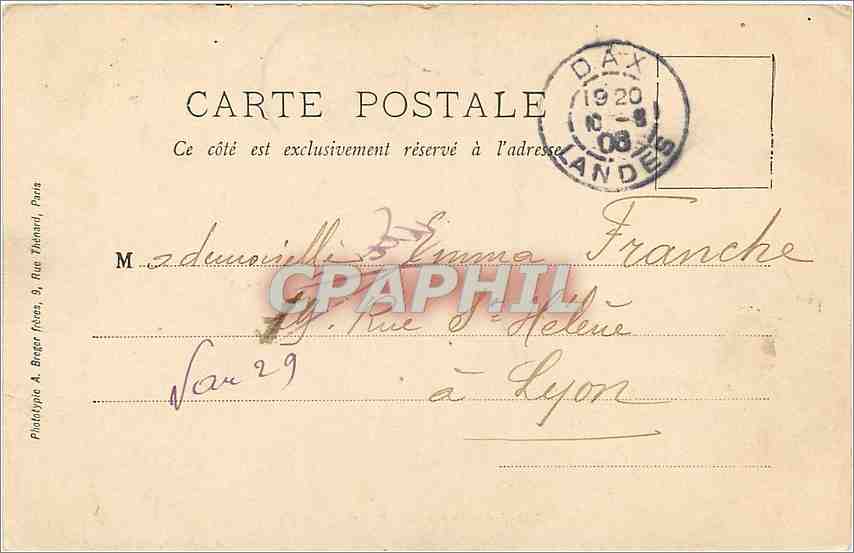 DAX
1920
10 -8
08
LANDES
CARTE POSTALE
Ce côté est exclusivement réservé à l'adresse
Mademoiselle Emma Franche
CPAPHIL
19. Rue Ste Hélène
à Lyon
Phototypie A. Breger frères, 9, Rue Thénard, Paris